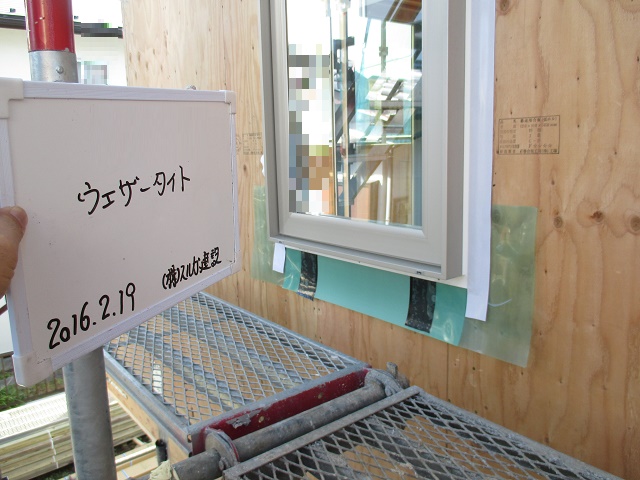 ウェザータイト
(株)スルガ建設
2016.2.19